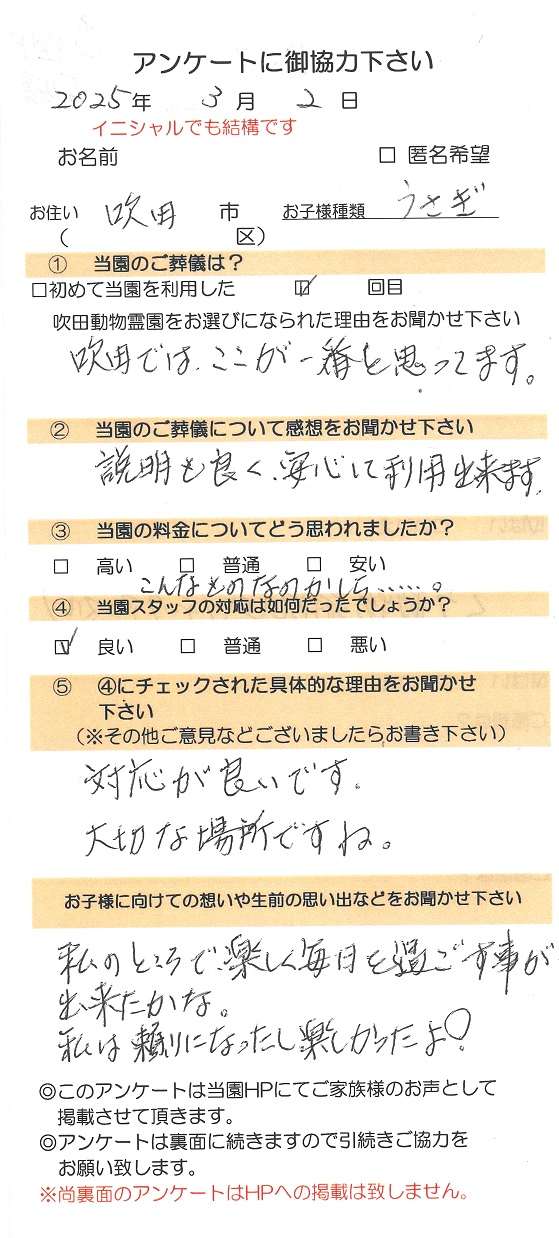 アンケートに御協力下さい
2025年 3月 2日
イニシャルでも結構です
お名前 □ 匿名希望
お住い 吹田 市 お子様種類 うさぎ
( 区)
① 当園のご葬儀は?
□初めて当園を利用した ☑ 回目
吹田動物霊園をお選びになられた理由をお聞かせ下さい
吹田では、ここが一番と思ってます。
② 当園のご葬儀について感想をお聞かせ下さい
説明も良く、安心して利用出来ます。
③ 当園の料金についてどう思われましたか?
□ 高い □ 普通 □ 安い
こんなものなのかしら……。
④ 当園スタッフの対応は如何だったでしょうか?
☑ 良い □ 普通 □ 悪い
⑤ ④にチェックされた具体的な理由をお聞かせ
下さい
(※その他ご意見などございましたらお書き下さい)
対応が良いです。
大切な場所ですね。
お子様に向けての想いや生前の思い出などをお聞かせ下さい
私のところで、楽しく毎日を過ごす事が
出来たかな。
私は頼りになったし楽しかったよ!
◎このアンケートは当園HPにてご家族様のお声として
掲載させて頂きます。
◎アンケートは裏面に続きますので引続きご協力を
お願い致します。
※尚裏面のアンケートはHPへの掲載は致しません。